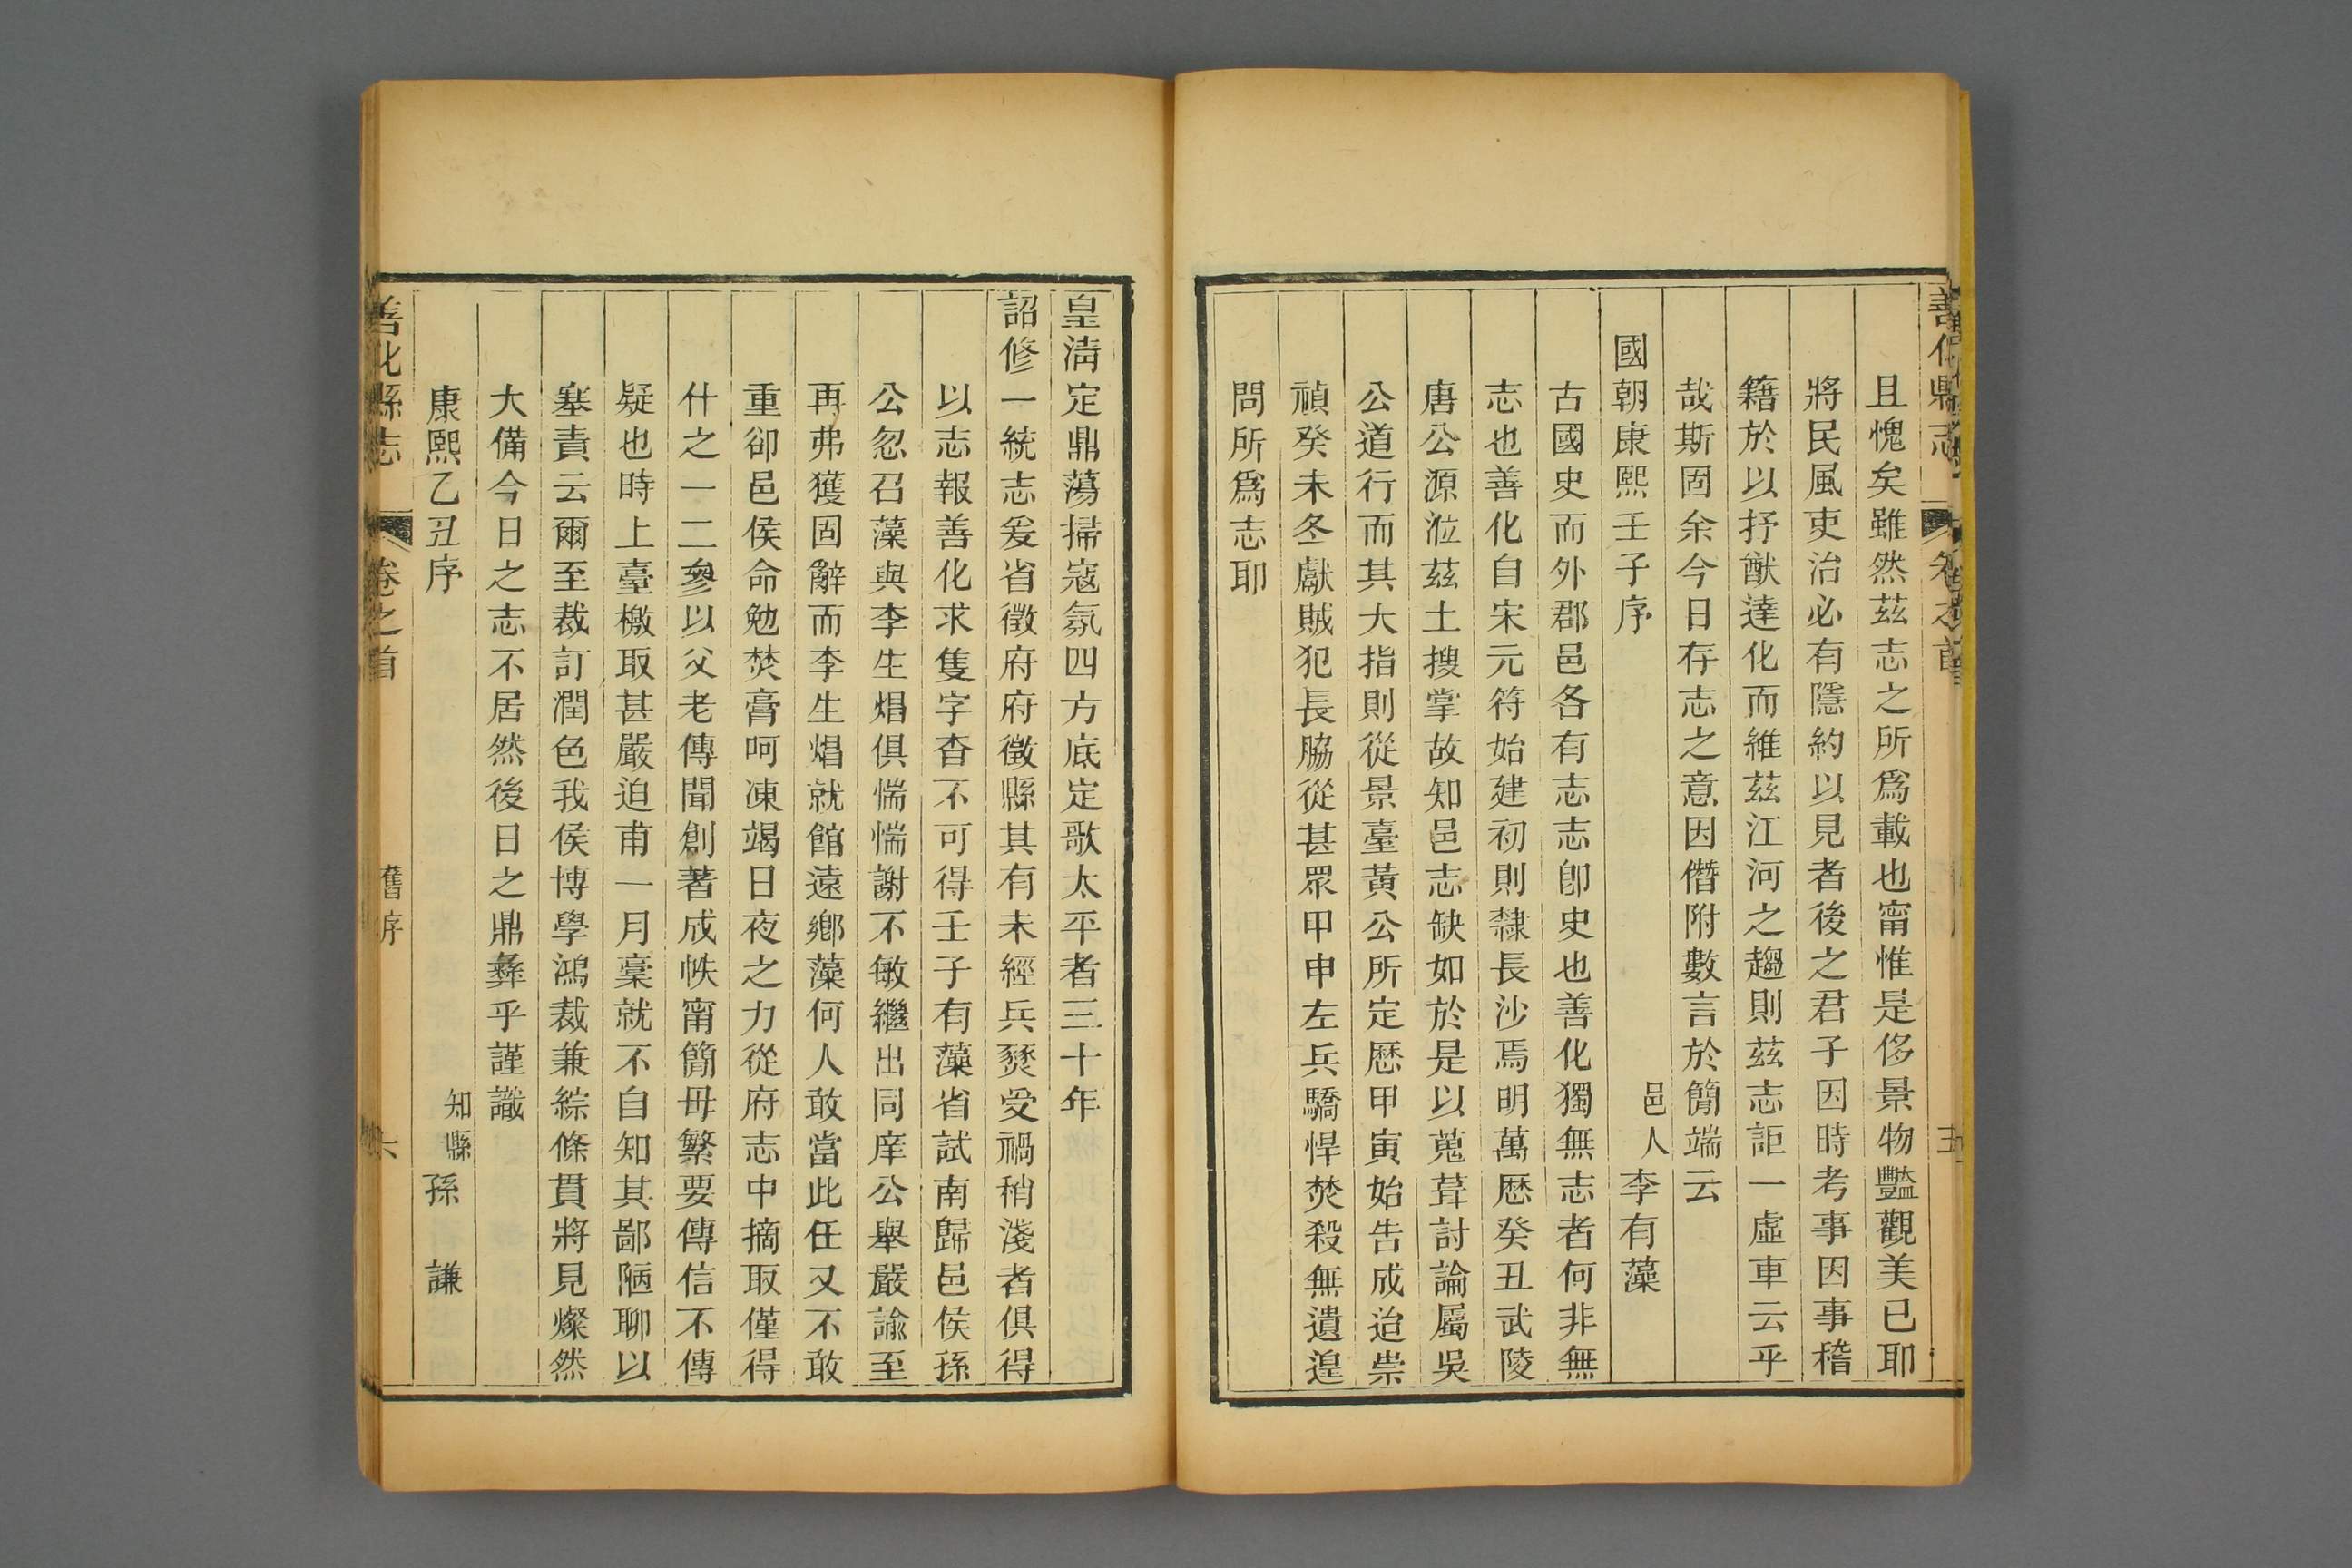 善化縣志 卷之首 五
且愧矣雖然茲志之所爲載也甯惟是侈景物豔觀美已耶
將民風吏治必有隱約以見者後之君子因時考事因事稽
籍於以抒猷達化而維茲江河之趨則茲志詎一虛車云乎
哉斯固余今日存志之意因僭附數言於簡端云
國朝康熙壬子序 邑人李有藻
古國史而外郡邑各有志志卽史也善化獨無志者何非無
志也善化自宋元符始建初則隸長沙焉明萬歷癸丑武陵
唐公源涖茲土搜掌故知邑志缺如於是以蒐葺討論屬吳
公道行而其大指則從景臺黃公所定歷甲寅始告成迨崇
禎癸未冬獻賊犯長脇從甚眾甲申左兵驕悍焚殺無遺遑
問所爲志耶
皇淸定鼎蕩掃寇氛四方底定歌太平者三十年
詔修一統志爰省徵府府徵縣其有未經兵燹受禍稍淺者俱得
以志報善化求隻字杳不可得壬子有藻省試南歸邑侯孫
公忽召藻與李生焻俱惴惴謝不敏繼出同庠公舉嚴諭至
再弗獲固辭而李生焻就館遠鄉藻何人敢當此任又不敢
重卻邑侯命勉焚膏呵凍竭日夜之力從府志中摘取僅得
什之一二參以父老傳聞創著成帙甯簡毋繁要傳信不傳
疑也時上臺檄取甚嚴迫甫一月稾就不自知其鄙陋聊以
塞責云爾至裁訂潤色我侯博學鴻裁兼綜條貫將見燦然
大備今日之志不居然後日之鼎彝乎謹識
康熙乙丑序 知縣孫 謙
善化縣志 卷之首 舊序 六